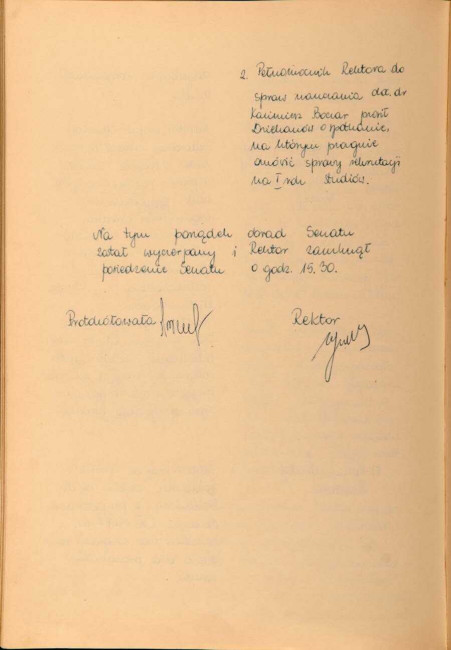 2. Pełnomocnik Rektora do
spraw nauczania doc. dr
Kazimierz Bocian prosił
Dziekanów o spotkanie,
na którym pragnie
omówić sprawy rekrutacji
na I rok studiów.
Na tym porządek obrad Senatu
został wyczerpany i Rektor zamknął
posiedzenie Senatu o godz. 15.30.
Protokółowała
Rektor